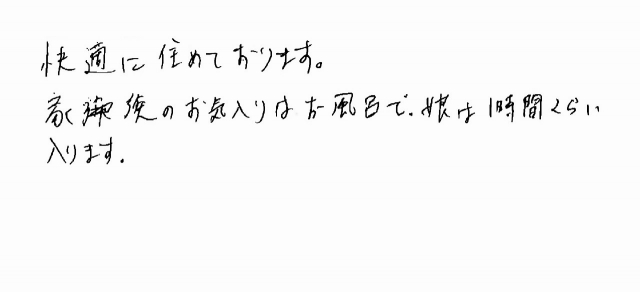 快適に住めております。
家族のお気入りはお風呂で、娘は1時間くらい
入ります。